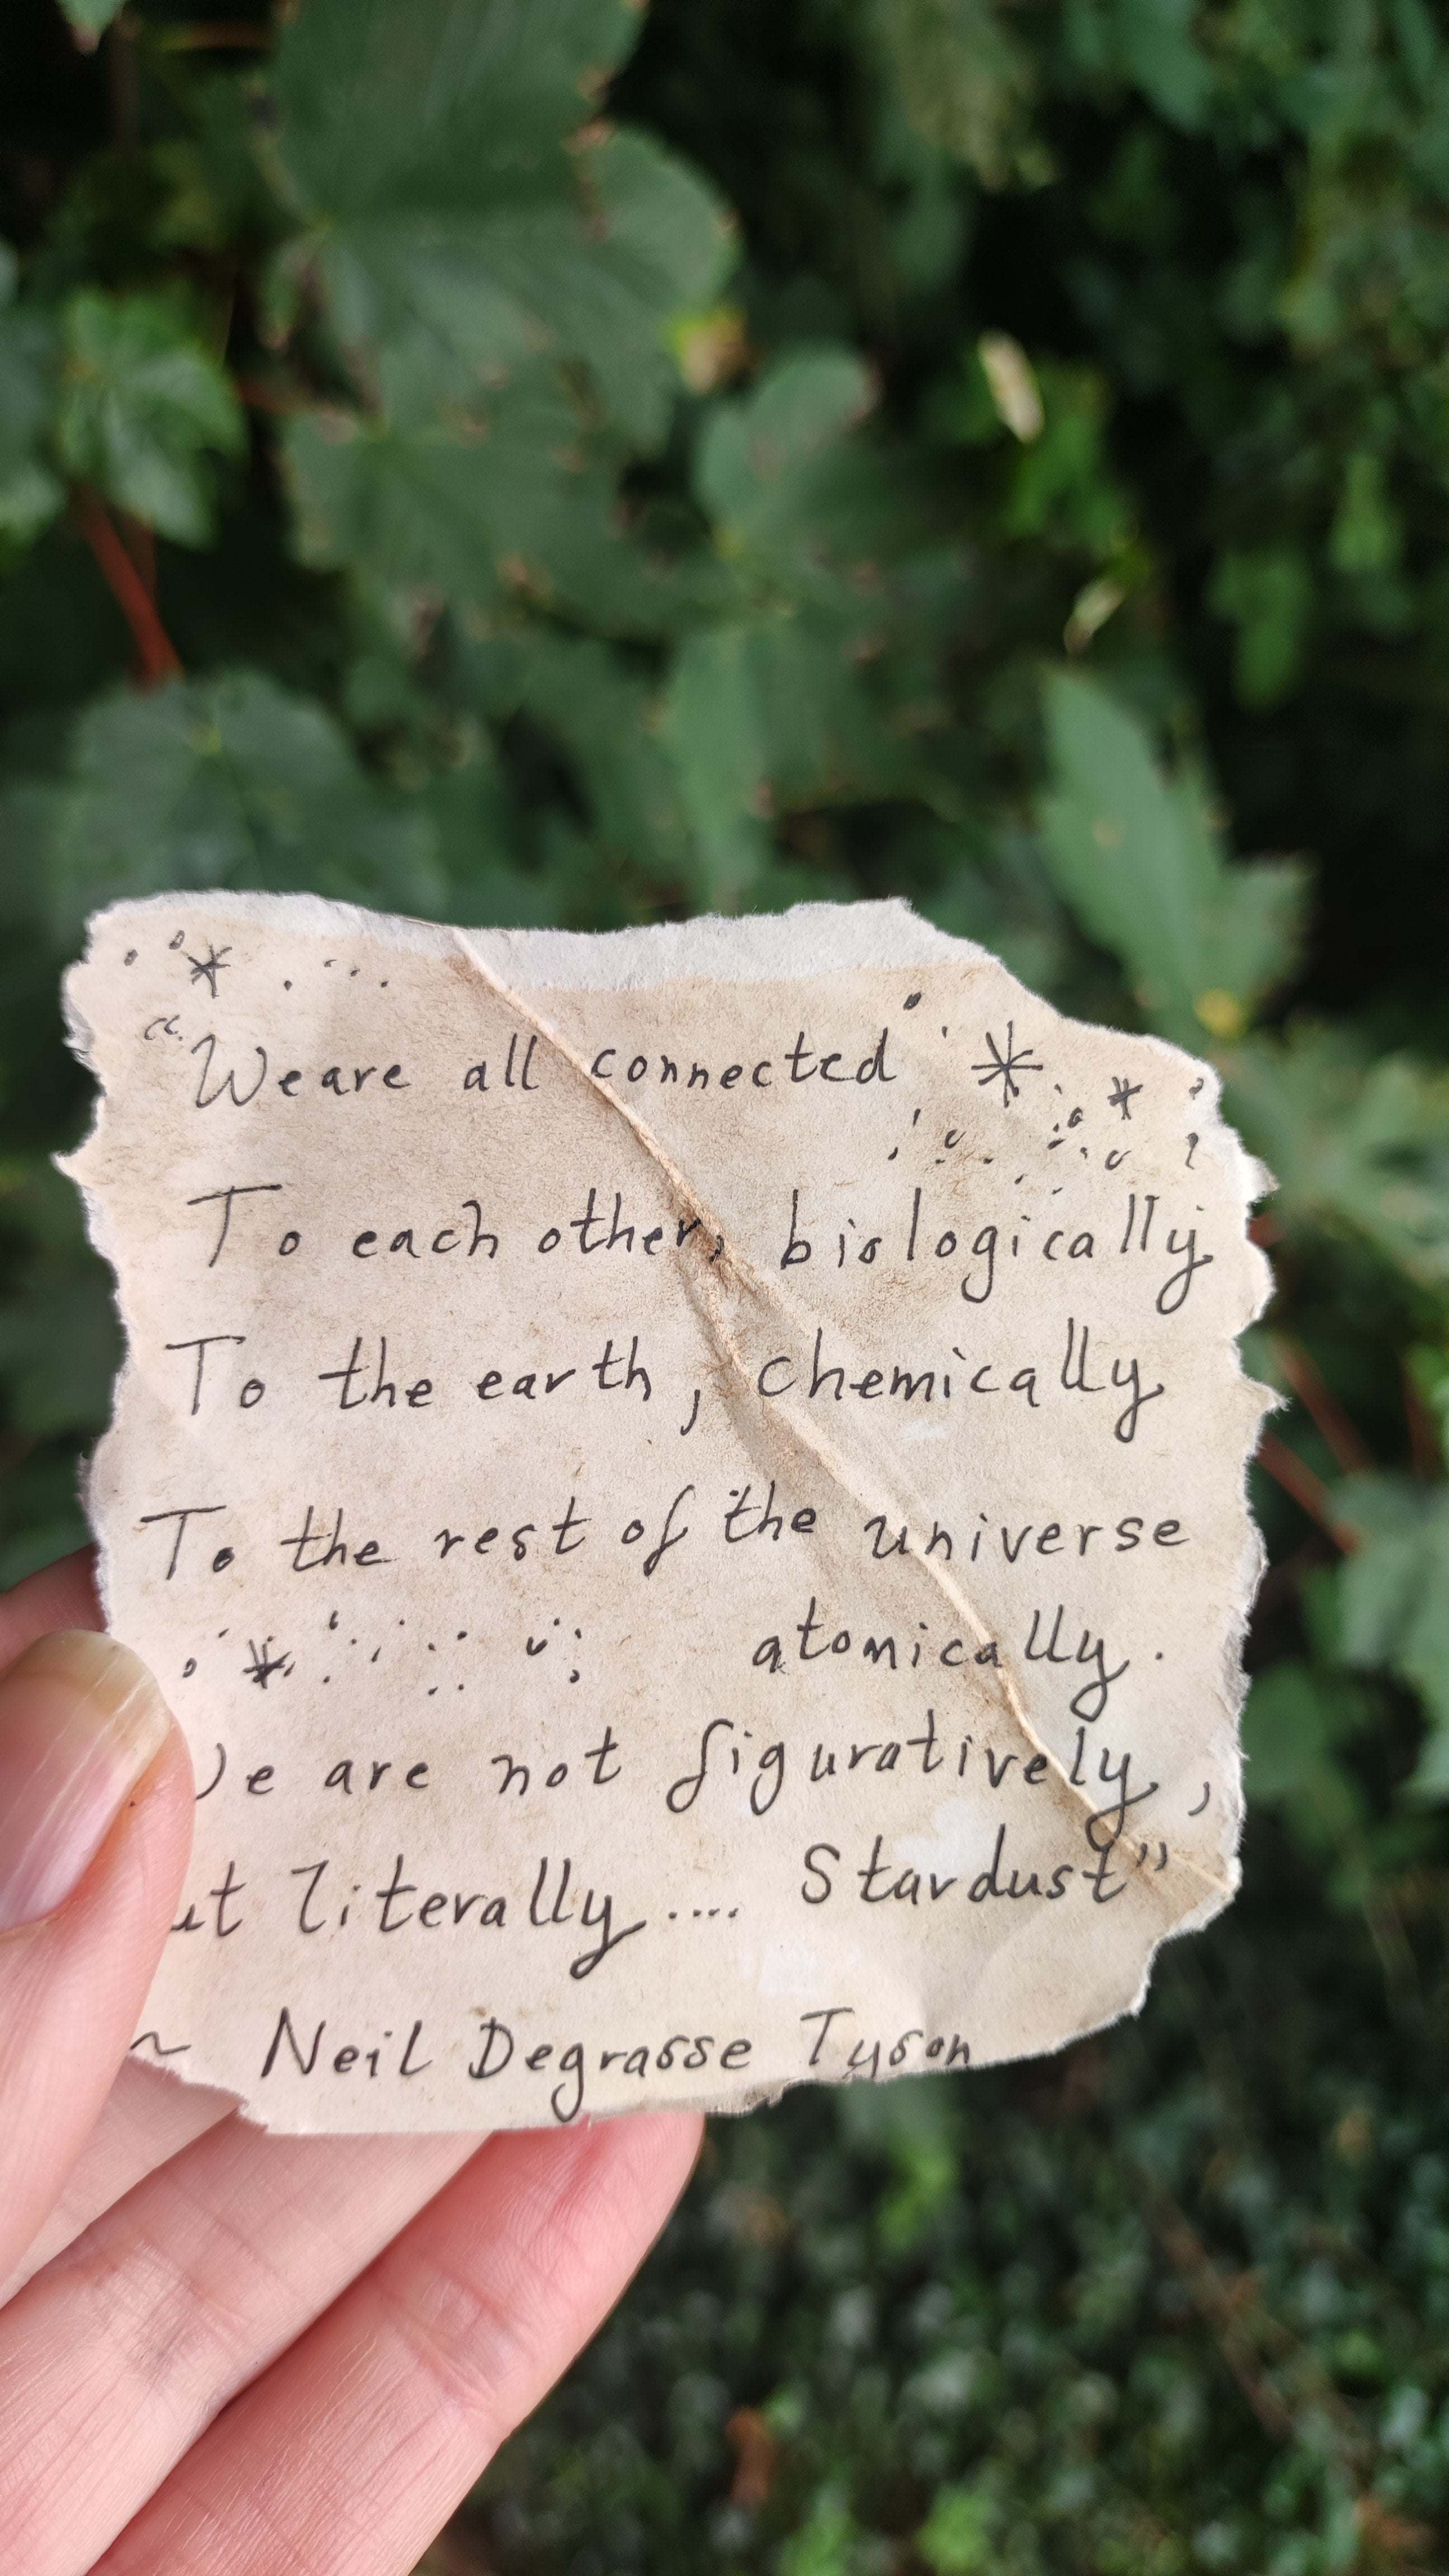 “We are all connected
To each other, biologically
To the earth, chemically
To the rest of the universe
atomically.
We are not figuratively,
but literally.... Stardust”
~ Neil Degrasse Tyson